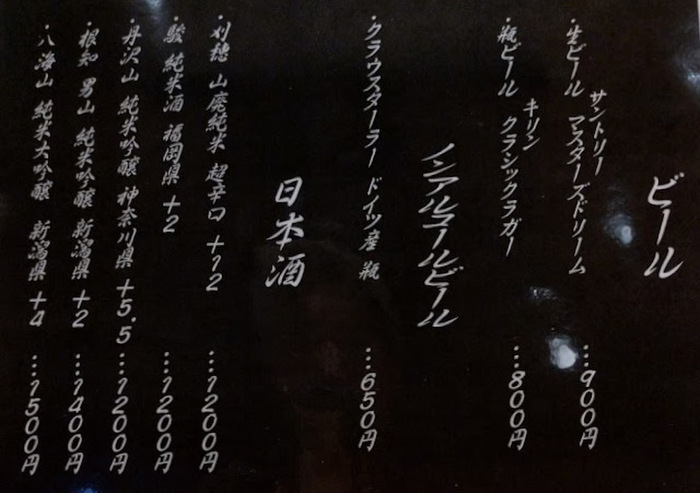 ビール
・生ビール サントリー マスターズドリーム …900円
・瓶ビール キリン クラシックラガー …800円
ノンアルコールビール
・クラウスターラー ドイツ産 瓶 …650円
日本酒
・刈穂 山廃純米 超辛口 +12 …1200円
・駿 純米酒 福岡県 +2 …1200円
・丹沢山 純米吟醸 神奈川県 +5.5 …1200円
・根知 男山 純米吟醸 新潟県 +2 …1400円
・八海山 純米大吟醸 新潟県 +4 …1500円